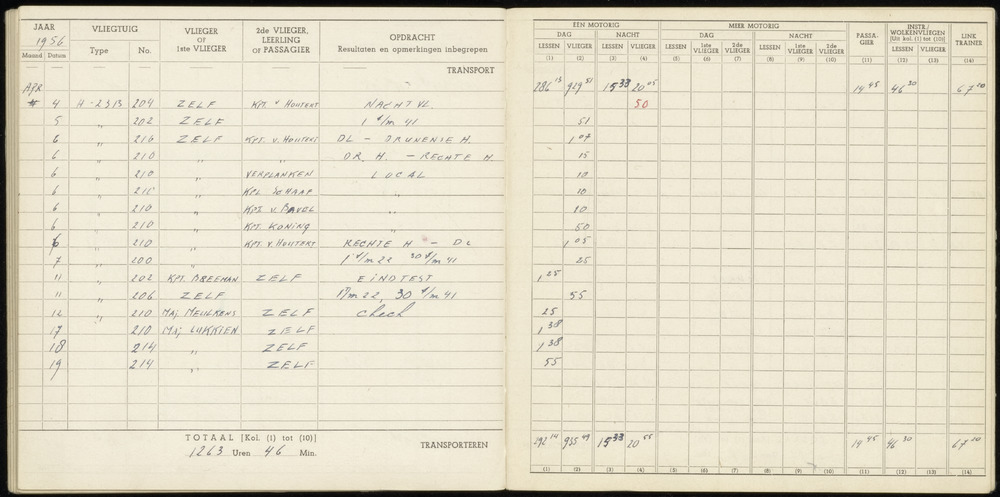 JAAR VLIEGTUIG VLIEGER OF 1ste VLIEGER 2de VLIEGER, LEERLING of PASSAGIER OPDRACHT
1956 Resultaten en opmerkingen inbegrepen
Maand Datum Type No.
TRANSPORT
APR
4 H-2S13 204 ZELF KPT v HOUTERT NACHT VL.
5 " 202 ZELF 1 t/m 41
6 " 216 ZELF KPT. v. HOUTERT DL - DRUNENSE H.
6 " 210 " " DR. H. - RECHTE H.
6 " 210 " VERPLANKEN LOCAL
6 " 210 " KPL SCHAAP "
6 " 210 " KPT v. BAVEL "
6 " 210 " KPT. KONING "
6 " 210 " KPT. v HOUTERT RECHTE H - DL
7 " 200 " 1 t/m 22 30 t/m 41
11 " 202 KPT. BREEMAN ZELF EINDTEST
11 206 ZELF 17 m 22, 30 t/m 41
12 " 210 MAJ. MEULKENS ZELF check
17 210 MAJ LUKKIEN ZELF
18 214 " ZELF
19 214 " ZELF
TOTAAL [Kol. (1) tot (10)] TRANSPORTEREN
1263 Uren 46 Min.
EEN MOTORIG MEER MOTORIG PASSA-GIER INSTR./WOLKENVLIEGEN [Uit kol. (1) tot (10)] LINK TRAINER
DAG NACHT DAG NACHT
LESSEN VLIEGER LESSEN VLIEGER LESSEN 1ste VLIEGER 2de VLIEGER LESSEN 1ste VLIEGER 2de VLIEGER LESSEN VLIEGER
(1) (2) (3) (4) (5) (6) (7) (8) (9) (10) (11) (12) (13) (14)
286 13 929 51 15 33 20 05 14 45 46 30 67 20
50
51
1 07
15
10
10
10
50
1 05
25
1 25
55
25
1 38
1 38
55
292 14 935 49 15 33 20 55 14 45 46 30 67 20
(1) (2) (3) (4) (5) (6) (7) (8) (9) (10) (11) (12) (13) (14)